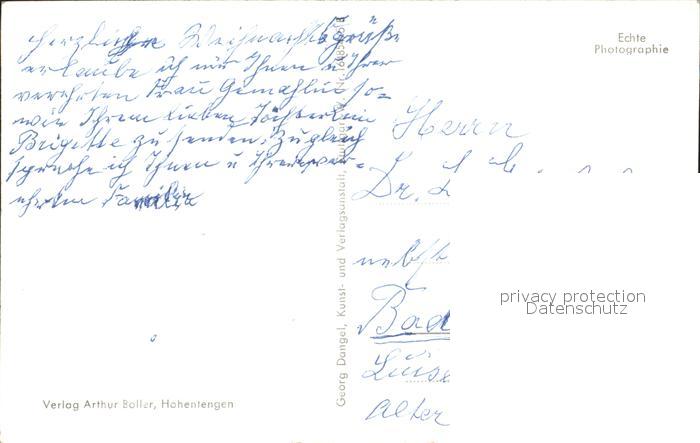 Herzliche Weihnachtsgrüße
erlaube ich mir Ihnen u Ihrer
verehrten Frau Gemahlin so=
wie Ihrem lieben Töchterlein
Brigitte zu senden. Zugleich
spreche ich Ihnen u Ihrer ver=
ehrten Familie
Echte
Photographie
Herrn
Dr.
nebst
Bad
Luise
Alter
Georg Dangel, Kunst- und Verlagsanstalt,
Verlag Arthur Boller, Hohentengen
privacy protection
Datenschutz